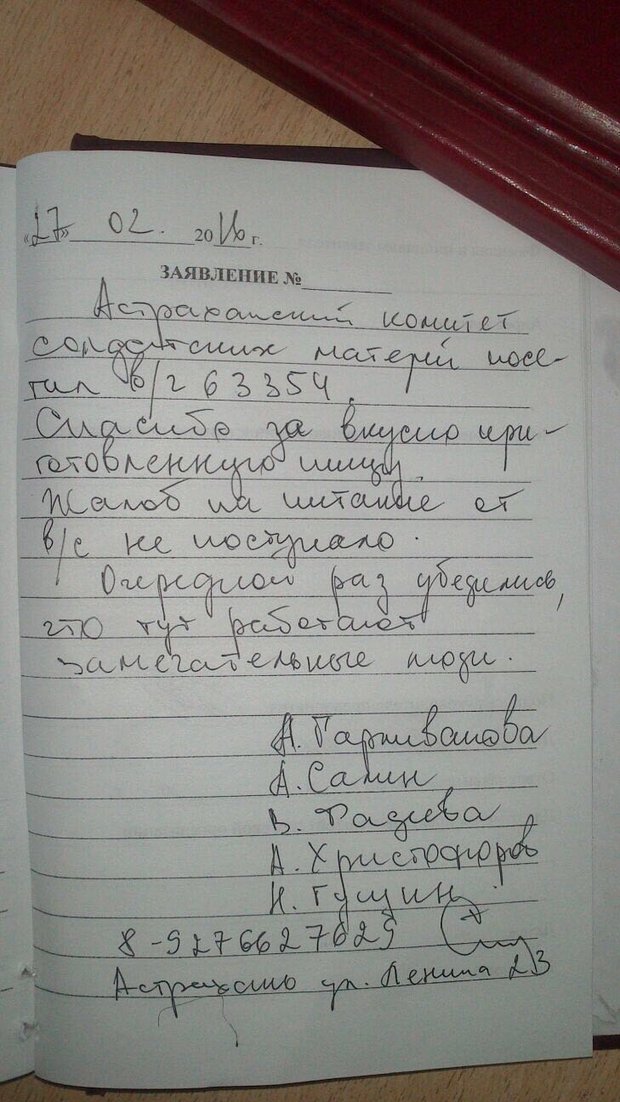 «27» 02. 2016 г.
ЗАЯВЛЕНИЕ №
Астраханский комитет
солдатских матерей посе-
тил в/ч 63354.
Спасибо за вкусно при-
готовленную пищу.
Жалоб на питание от
в/с не поступало.
Очередной раз убедились,
что тут работают
замечательные люди.
А. Гарливанова
А. Салин
В. Радчева
А. Христофоров
Н. Гущин
8-9276627629
Астрахань ул. Ленина 23